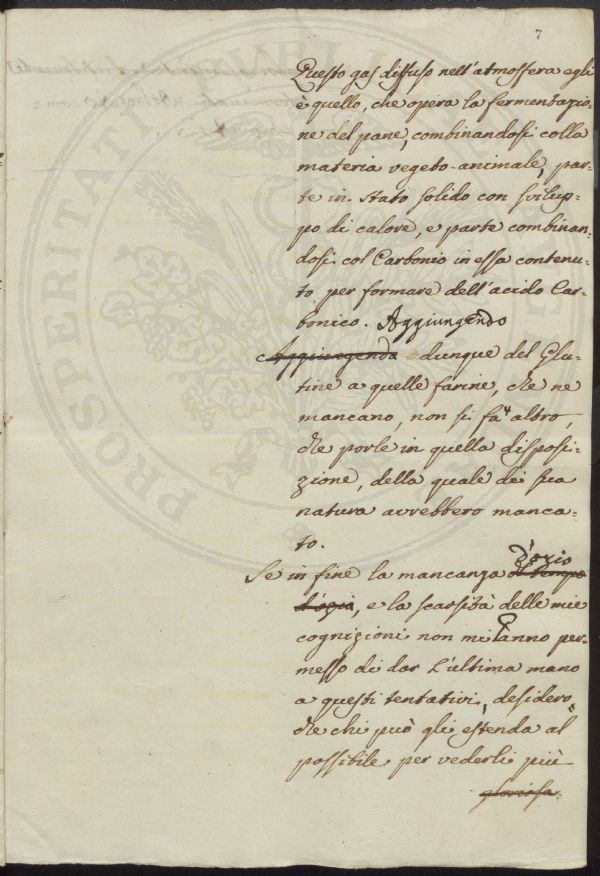 7
Questo gas diffuso nell'atmosfera egli
è quello, che opera la fermentazio-
ne del pane, combinandosi colla
materia vegeto-animale, par-
te in stato solido con svilup-
po di calore, e parte combinan-
dosi col Carbonio in essa contenu-
to per formare dell'acido Car-
bonico. Aggiungendo
Aggiungendo dunque del Glu-
tine a quelle farine, che ne
mancano, non si fà altro,
che porle in quella disposi-
zione, della quale di sua
natura avrebbero manca-
to.
d'ozio
Se in fine la mancanza di tempo
d'ozio, e la scarsità delle mie
cognizioni non mi anno per-
messo di dar l'ultima mano
a questi tentativi, desidero,
che chi può gli estenda al
possibile per vederli più
PROSPERITATI